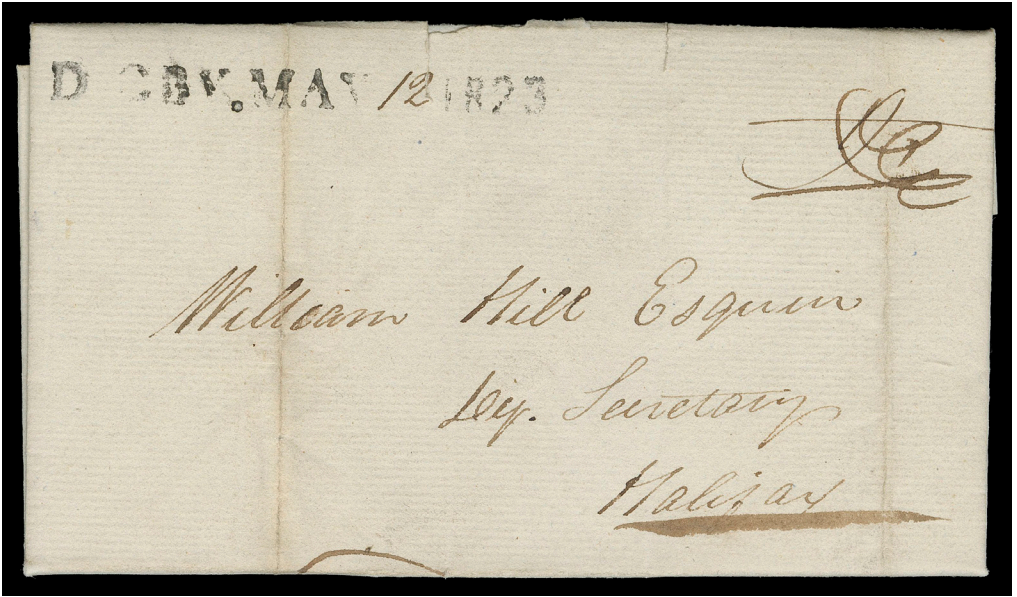 DIGBY. MAY 12 1823
William Hill Esquire
Dep. Secretary
Halifax